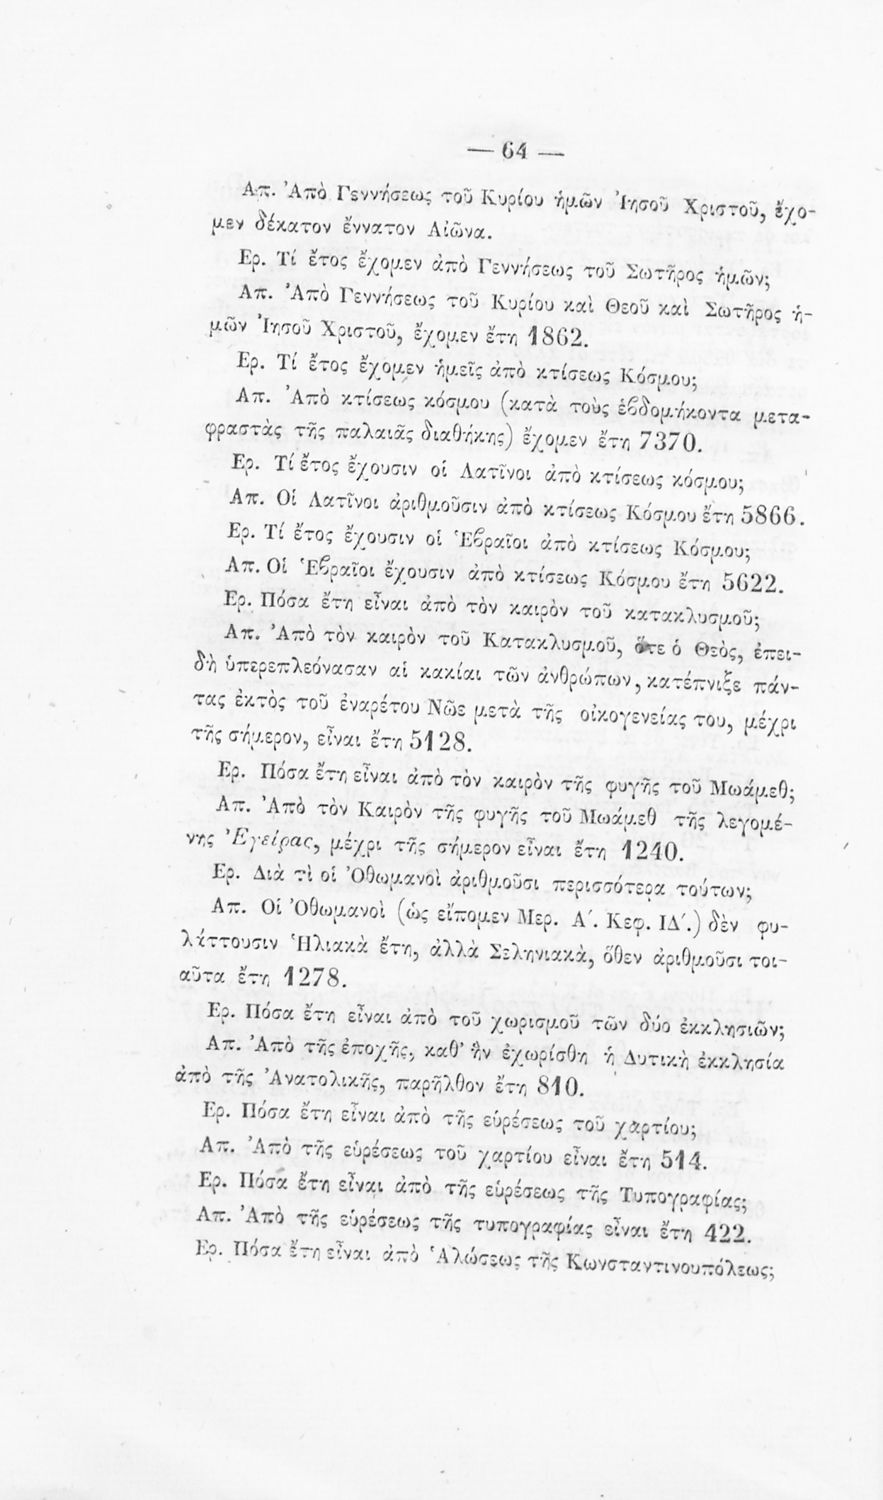 — 64 —
Απ. Ἀπὸ Γεννήσεως τοῦ Κυρίου ἡμῶν Ἰησοῦ Χριστοῦ, ἔχο-
μεν δέκατον ἔννατον Αἰῶνα.
Ερ. Τί ἔτος ἔχομεν ἀπὸ Γεννήσεως τοῦ Σωτῆρος ἡμῶν;
Απ. Ἀπὸ Γεννήσεως τοῦ Κυρίου καὶ Θεοῦ καὶ Σωτῆρος ἡ-
μῶν Ἰησοῦ Χριστοῦ, ἔχομεν ἔτη 1862.
Ερ. Τί ἔτος ἔχομεν ἡμεῖς ἀπὸ κτίσεως Κόσμου;
Απ. Ἀπὸ κτίσεως κόσμου (κατὰ τοὺς ἑβδομήκοντα μετα-
φραστὰς τῆς παλαιᾶς διαθήκης) ἔχομεν ἔτη 7370.
Ερ. Τί ἔτος ἔχουσιν οἱ Λατῖνοι ἀπὸ κτίσεως κόσμου;
Απ. Οἱ Λατῖνοι ἀριθμοῦσιν ἀπὸ κτίσεως Κόσμου ἔτη 5866.
Ερ. Τί ἔτος ἔχουσιν οἱ Ἑβραῖοι ἀπὸ κτίσεως Κόσμου;
Απ. Οἱ Ἑβραῖοι ἔχουσιν ἀπὸ κτίσεως Κόσμου ἔτη 5622.
Ερ. Πόσα ἔτη εἶναι ἀπὸ τὸν καιρὸν τοῦ κατακλυσμοῦ;
Απ. Ἀπὸ τὸν καιρὸν τοῦ Κατακλυσμοῦ, ὅτε ὁ Θεὸς, ἐπει-
δὴ ὑπερεπλεόνασαν αἱ κακίαι τῶν ἀνθρώπων, κατέπνιξε πάν-
τας ἐκτὸς τοῦ ἐναρέτου Νῶε μετὰ τῆς οἰκογενείας του, μέχρι
τῆς σήμερον, εἶναι ἔτη 5128.
Ερ. Πόσα ἔτη εἶναι ἀπὸ τὸν καιρὸν τῆς φυγῆς τοῦ Μωάμεθ;
Απ. Ἀπὸ τὸν Καιρὸν τῆς φυγῆς τοῦ Μωάμεθ τῆς λεγομέ-
νης Ἐγείρας, μέχρι τῆς σήμερον εἶναι ἔτη 1240.
Ερ. Διὰ τὶ οἱ Ὀθωμανοὶ ἀριθμοῦσι περισσότερα τούτων;
Απ. Οἱ Ὀθωμανοὶ (ὡς εἴπομεν Μερ. Α΄. Κεφ. ΙΔ΄.) δὲν φυ-
λάττουσιν Ἡλιακὰ ἔτη, ἀλλὰ Σεληνιακὰ, ὅθεν ἀριθμοῦσι τοι-
αῦτα ἔτη 1278.
Ερ. Πόσα ἔτη εἶναι ἀπὸ τοῦ χωρισμοῦ τῶν δύο ἐκκλησιῶν;
Απ. Ἀπὸ τῆς ἐποχῆς, καθ' ἣν ἐχωρίσθη ἡ Δυτικὴ ἐκκλησία
ἀπὸ τῆς Ἀνατολικῆς, παρῆλθον ἔτη 810.
Ερ. Πόσα ἔτη εἶναι ἀπὸ τῆς εὑρέσεως τοῦ χαρτίου;
Απ. Ἀπὸ τῆς εὑρέσεως τοῦ χαρτίου εἶναι ἔτη 514.
Ερ. Πόσα ἔτη εἶναι ἀπὸ τῆς εὑρέσεως τῆς Τυπογραφίας;
Απ. Ἀπὸ τῆς εὑρέσεως τῆς τυπογραφίας εἶναι ἔτη 422.
Ερ. Πόσα ἔτη εἶναι ἀπὸ Ἁλώσεως τῆς Κωνσταντινουπόλεως;